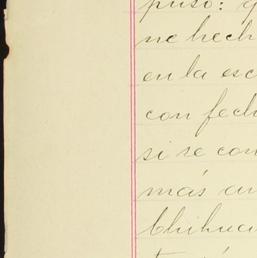 puso: q
ne hech
en la esc
con fech
si se con
más an
Chihua